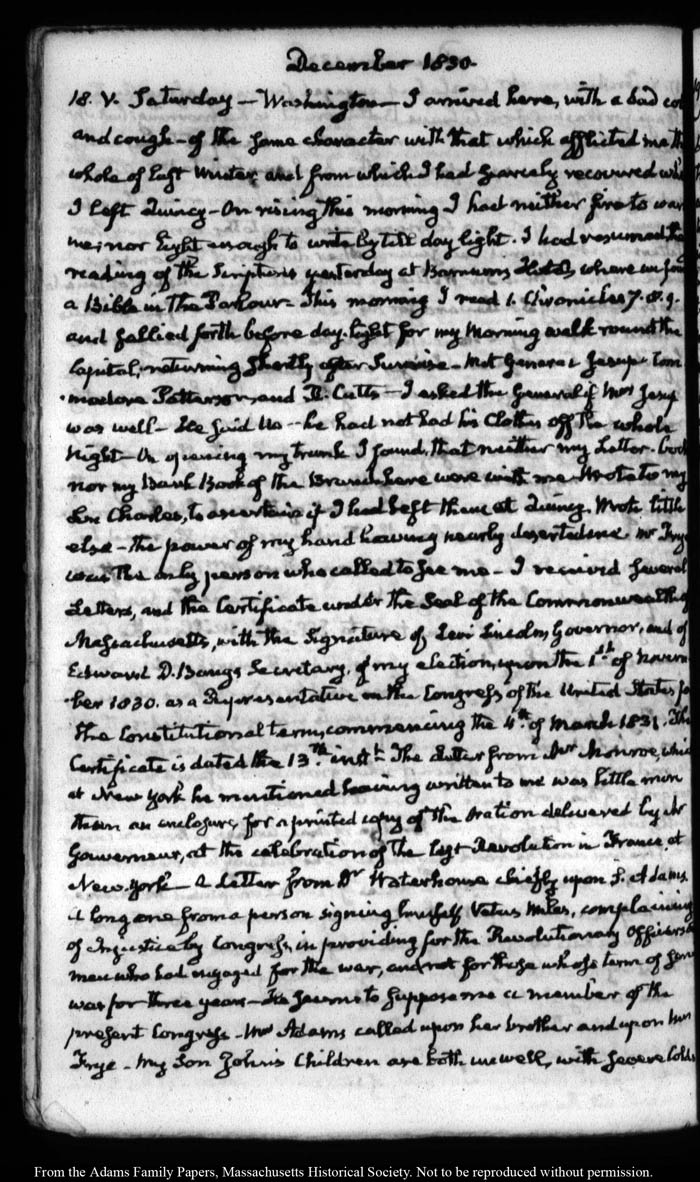 December 1830.
18. V. Saturday — Washington — I arrived here, with a bad co
and cough — of the same character with that which afflicted me th
whole of last Winter, and from which I had scarcely recovered wh
I left Quincy — On rising this morning I had neither fire to war
me, nor light enough to write by till day light. I had resumed the
reading of the Scriptures yesterday at Barnums Hotel, where we fou
a Bible in the Parlour — This morning I read 1. Chronicles 7. 8. 9.
and sallied forth before day-light for my Morning walk round the
Capitol, returning shortly after Sunrise — Met General Jesup Com
modore Patterson, and R. Cutts — I asked the General if Mrs Jesup
was well — He said No — he had not had his Clothes off the whole
Night — On opening my trunk I found, that neither my Letter-book
nor my Bank Book of the Branch here were with me — Wrote to my
Son Charles, to ascertain if I had left them at Quincy. Wrote little
else — the power of my hand having nearly deserted me. Mr Frye
was the only person who called to see me — I received several
Letters, and the Certificate under the Seal of the Commonwealth of
Massachusetts, with the Signature of Levi Lincoln, Governor, and of
Edward D. Bangs Secretary, of my election, upon the 1st of Novem
ber 1830. as a Representative in the Congress of the United States, fo
the Constitutional term, commencing the 4th of March 1831. The
Certificate is dated the 13th instt. The Letter from Mr Monroe, whic
at New York he mentioned having written to me was little more
than an enclosure, for a printed copy of the Oration delivered by Mr
Gouverneur, at the celebration of the last Revolution in France, at
New-York — A Letter from Dr Waterhouse chiefly upon S. Adams.
A long one from a person signing himself Vetus Miles, complaining
of Injustice by Congress, in providing for the Revolutionary Officers &
men who had engaged for the war, and not for those whose term of serv
was for three years — He seems to suppose me a member of the
present Congress — Mrs Adams called upon her brother and upon Mrs
Frye — My Son John's Children are both unwell, with severe Colds
From the Adams Family Papers, Massachusetts Historical Society. Not to be reproduced without permission.